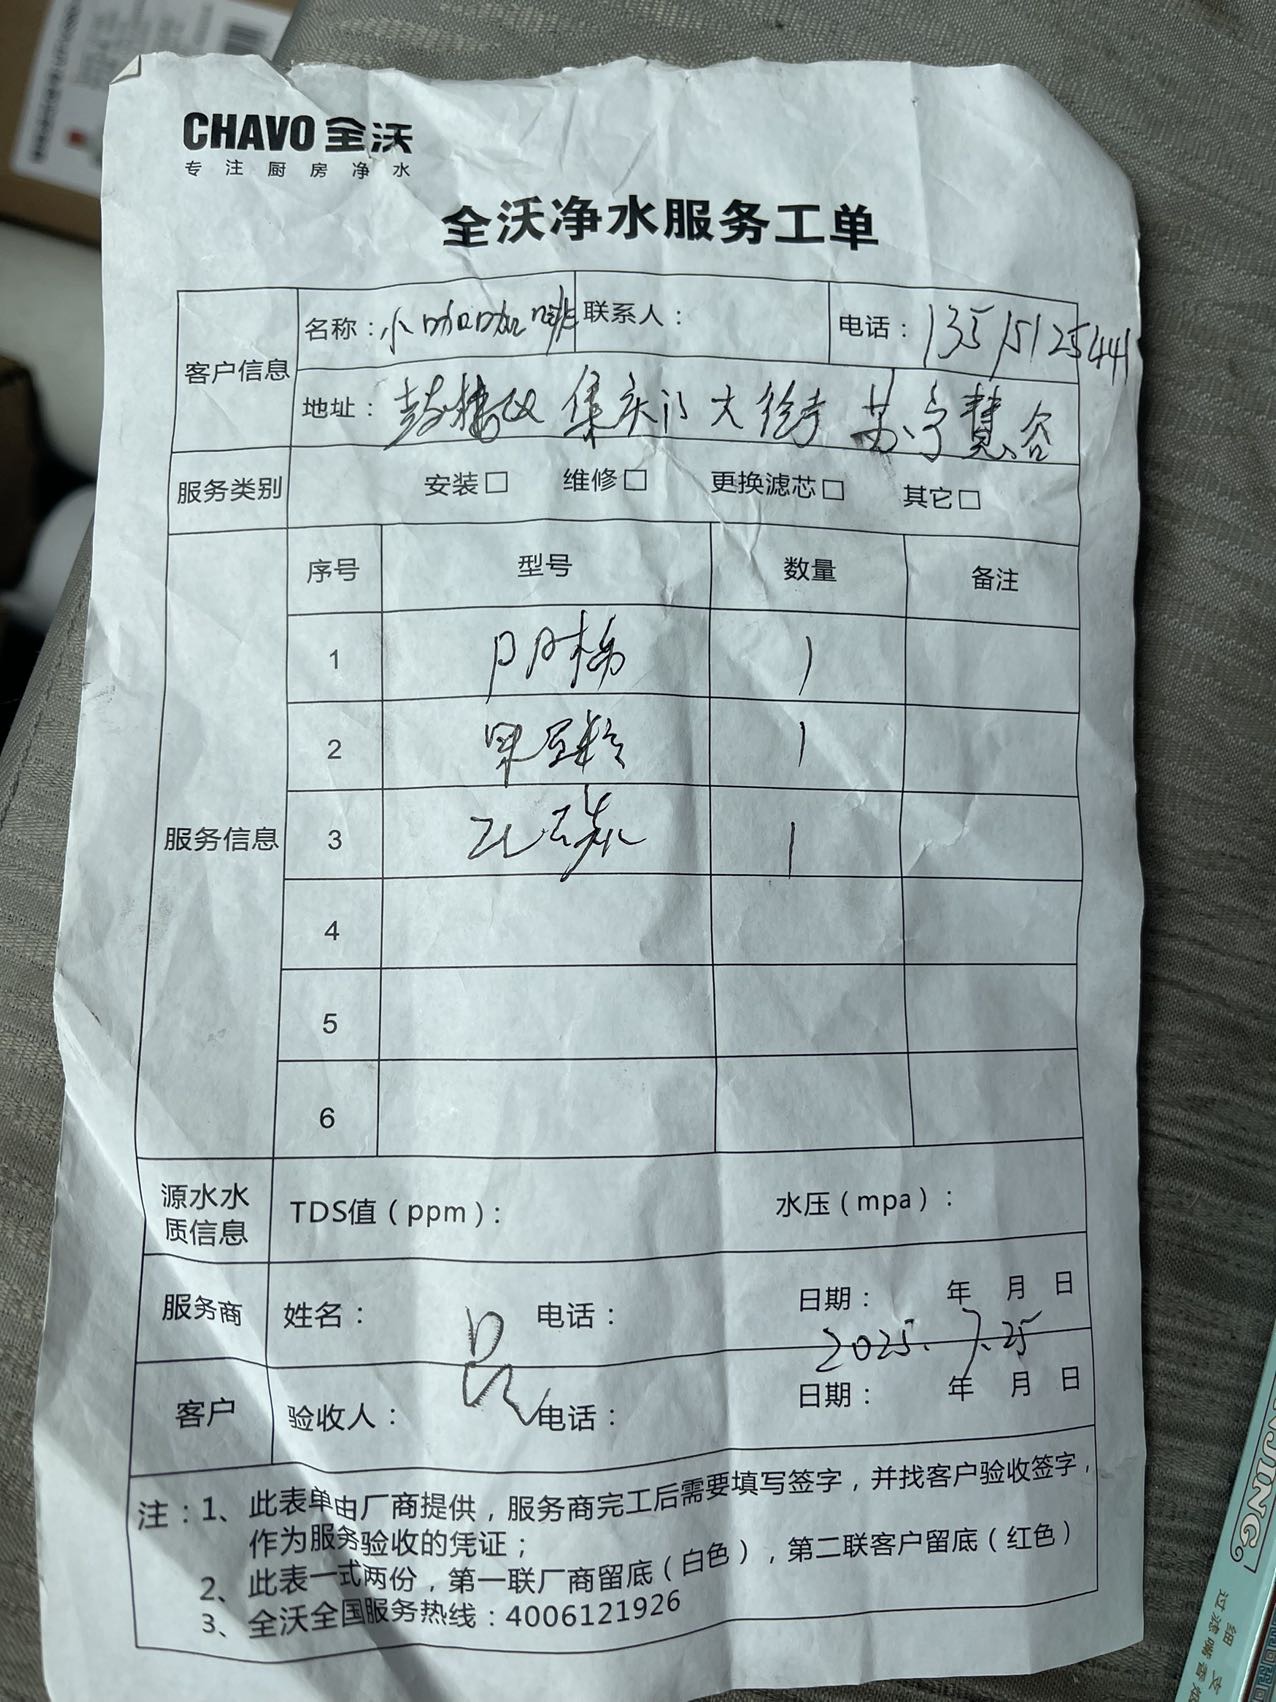 CHAVO 全沃
专注厨房净水
全沃净水服务工单
客户信息
名称：小咖咖啡 联系人： 电话：13515125441
地址：鼓楼区 集庆门大街 苏宁慧谷
服务类别 安装□ 维修□ 更换滤芯□ 其它□
服务信息
序号 型号 数量 备注
1 PP棉 1
2 果壳 1
3 1
4
5
6
源水水质信息 TDS值（ppm）： 水压（mpa）：
服务商 姓名： 电话： 日期： 年 月 日
2025.7.25
客户 验收人： 电话： 日期： 年 月 日
注：1、此表单由厂商提供，服务商完工后需要填写签字，并找客户验收签字，
作为服务验收的凭证；
2、此表一式两份，第一联厂商留底（白色），第二联客户留底（红色）
3、全沃全国服务热线：4006121926
NJING